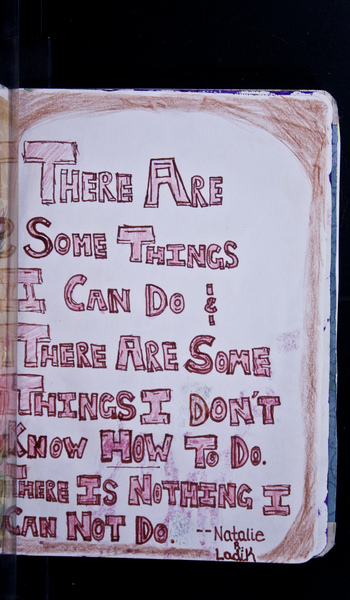 There Are
Some Things
I Can Do &
There Are Some
Things I Don't
Know How To Do.
There Is Nothing I
Can Not Do. -- Natalie
Ladik